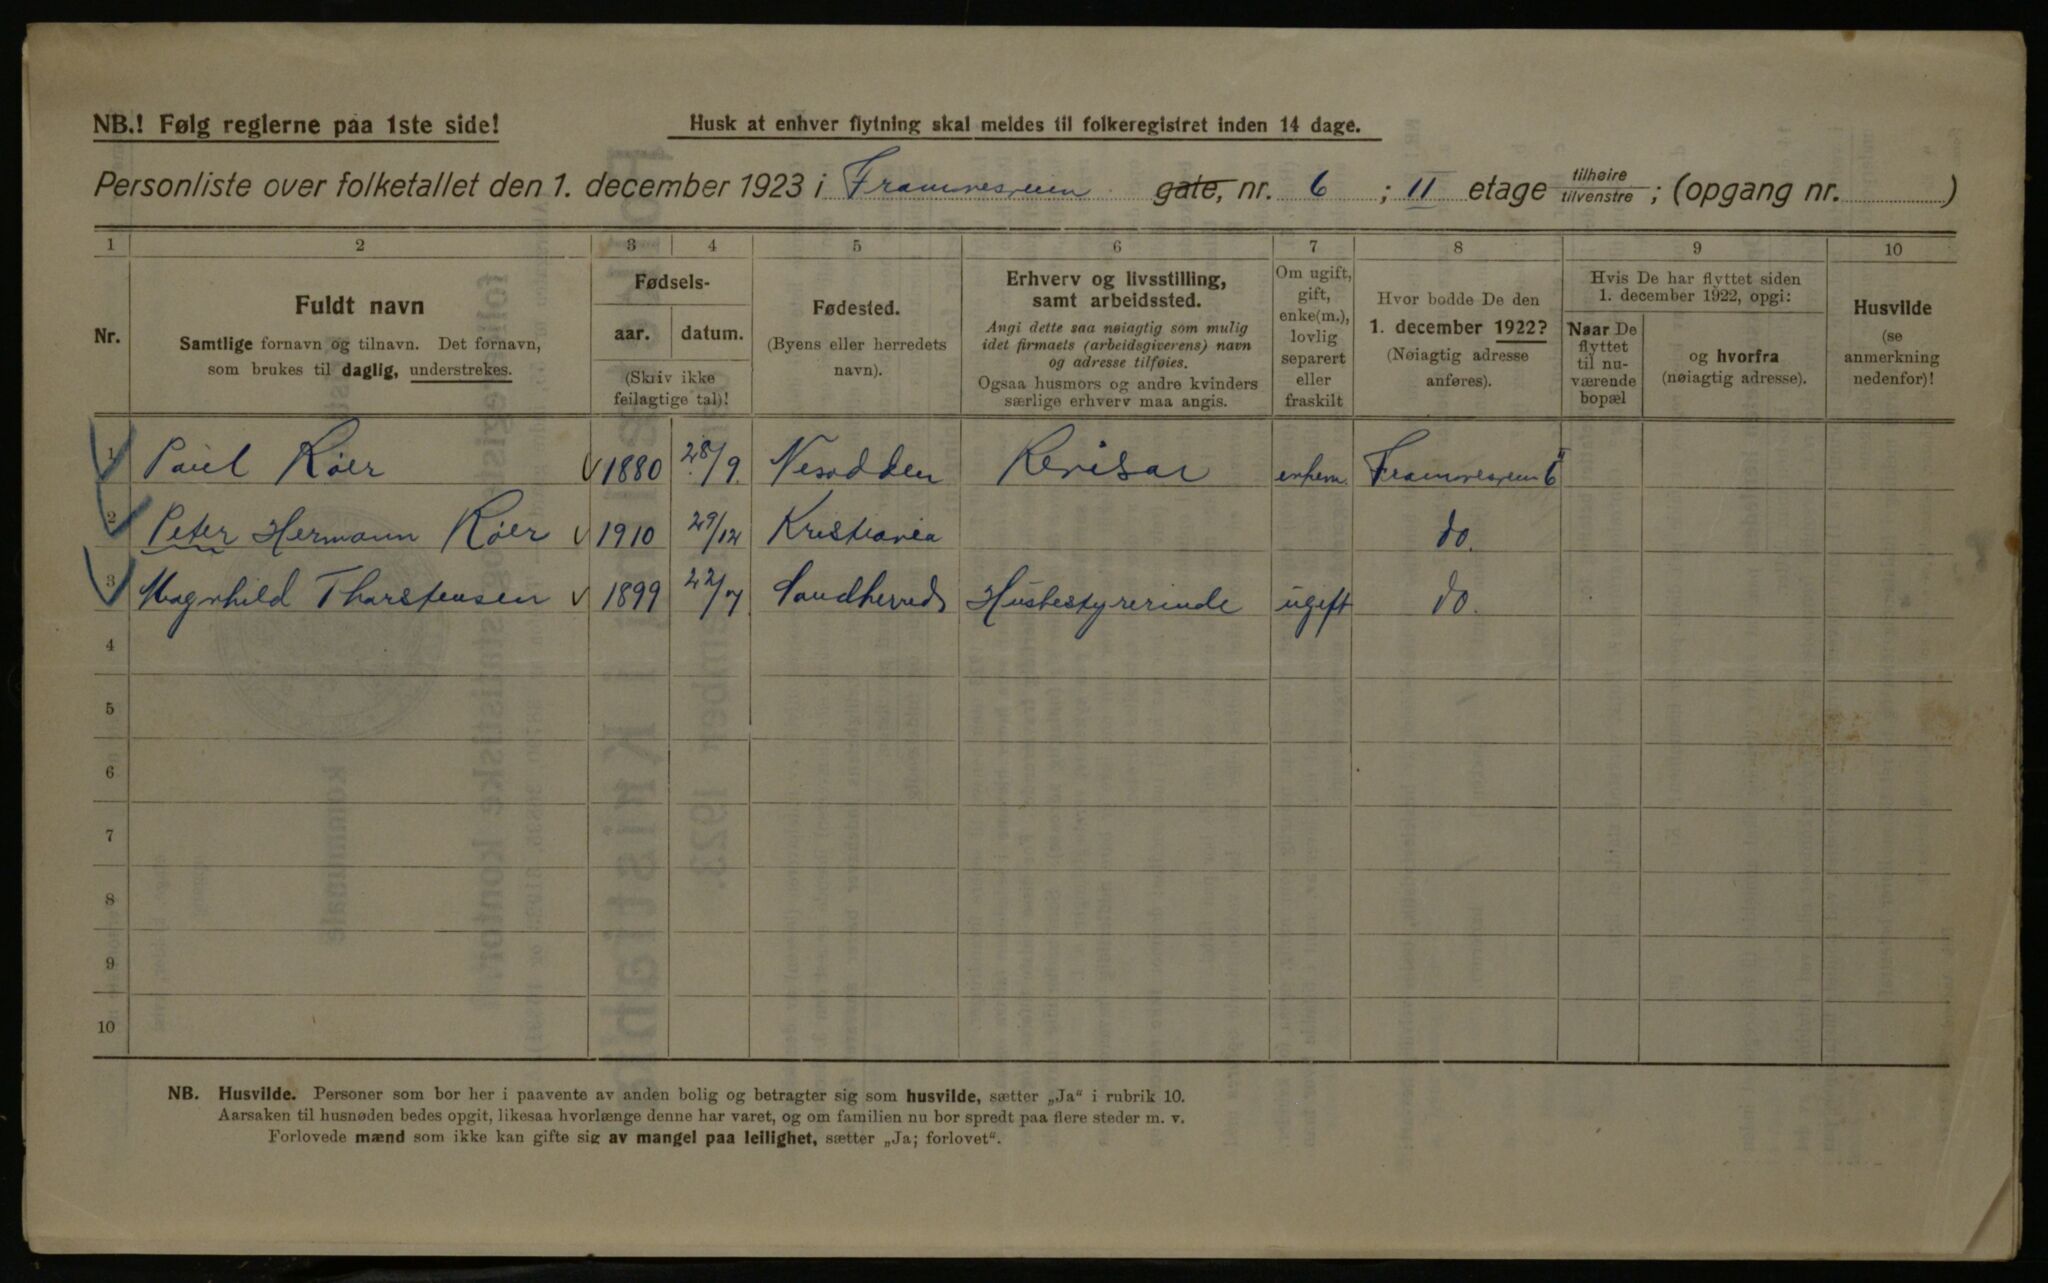 NB.! Følg reglerne paa 1ste side!
Husk at enhver flytning skal meldes til folkeregistret inden 14 dage.
Personliste over folketallet den 1. december 1923 i Framnesveien gate, nr. 6 ; II etage tilhøire/tilvenstre ; (opgang nr. )
1 2 3 4 5 6 7 8 9 10
Nr.
Fuldt navn
Samtlige fornavn og tilnavn. Det fornavn,
som brukes til daglig, understrekes.
Fødsels-
aar. datum.
(Skriv ikke
feilagtige tal)!
Fødested.
(Byens eller herredets
navn).
Erhverv og livsstilling,
samt arbeidssted.
Angi dette saa nøiagtig som mulig
idet firmaets (arbeidsgiverens) navn
og adresse tilføies.
Ogsaa husmors og andre kvinders
særlige erhverv maa angis.
Om ugift,
gift,
enke(m.),
lovlig
separert
eller
fraskilt
Hvor bodde De den
1. december 1922?
(Nøiagtig adresse
anføres).
Hvis De har flyttet siden
1. december 1922, opgi:
Naar De
flyttet
til nu-
værende
bopæl
og hvorfra
(nøiagtig adresse).
Husvilde
(se
anmerkning
nedenfor)!
1 Paul Røer 1880 28/9. Nesodden Revisor enkem. Framnesveien 6 II
2 Peter Hermann Røer 1910 29/12 Kristiania do.
3 Magnhild Thorstensen 1899 22/7 Sandherred Husbestyrerinde ugift do.
4
5
6
7
8
9
10
NB. Husvilde. Personer som bor her i paavente av anden bolig og betragter sig som husvilde, sætter „Ja“ i rubrik 10.
Aarsaken til husnøden bedes opgit, likesaa hvorlænge denne har varet, og om familien nu bor spredt paa flere steder m. v.
Forlovede mænd som ikke kan gifte sig av mangel paa leilighet, sætter „Ja; forlovet“.